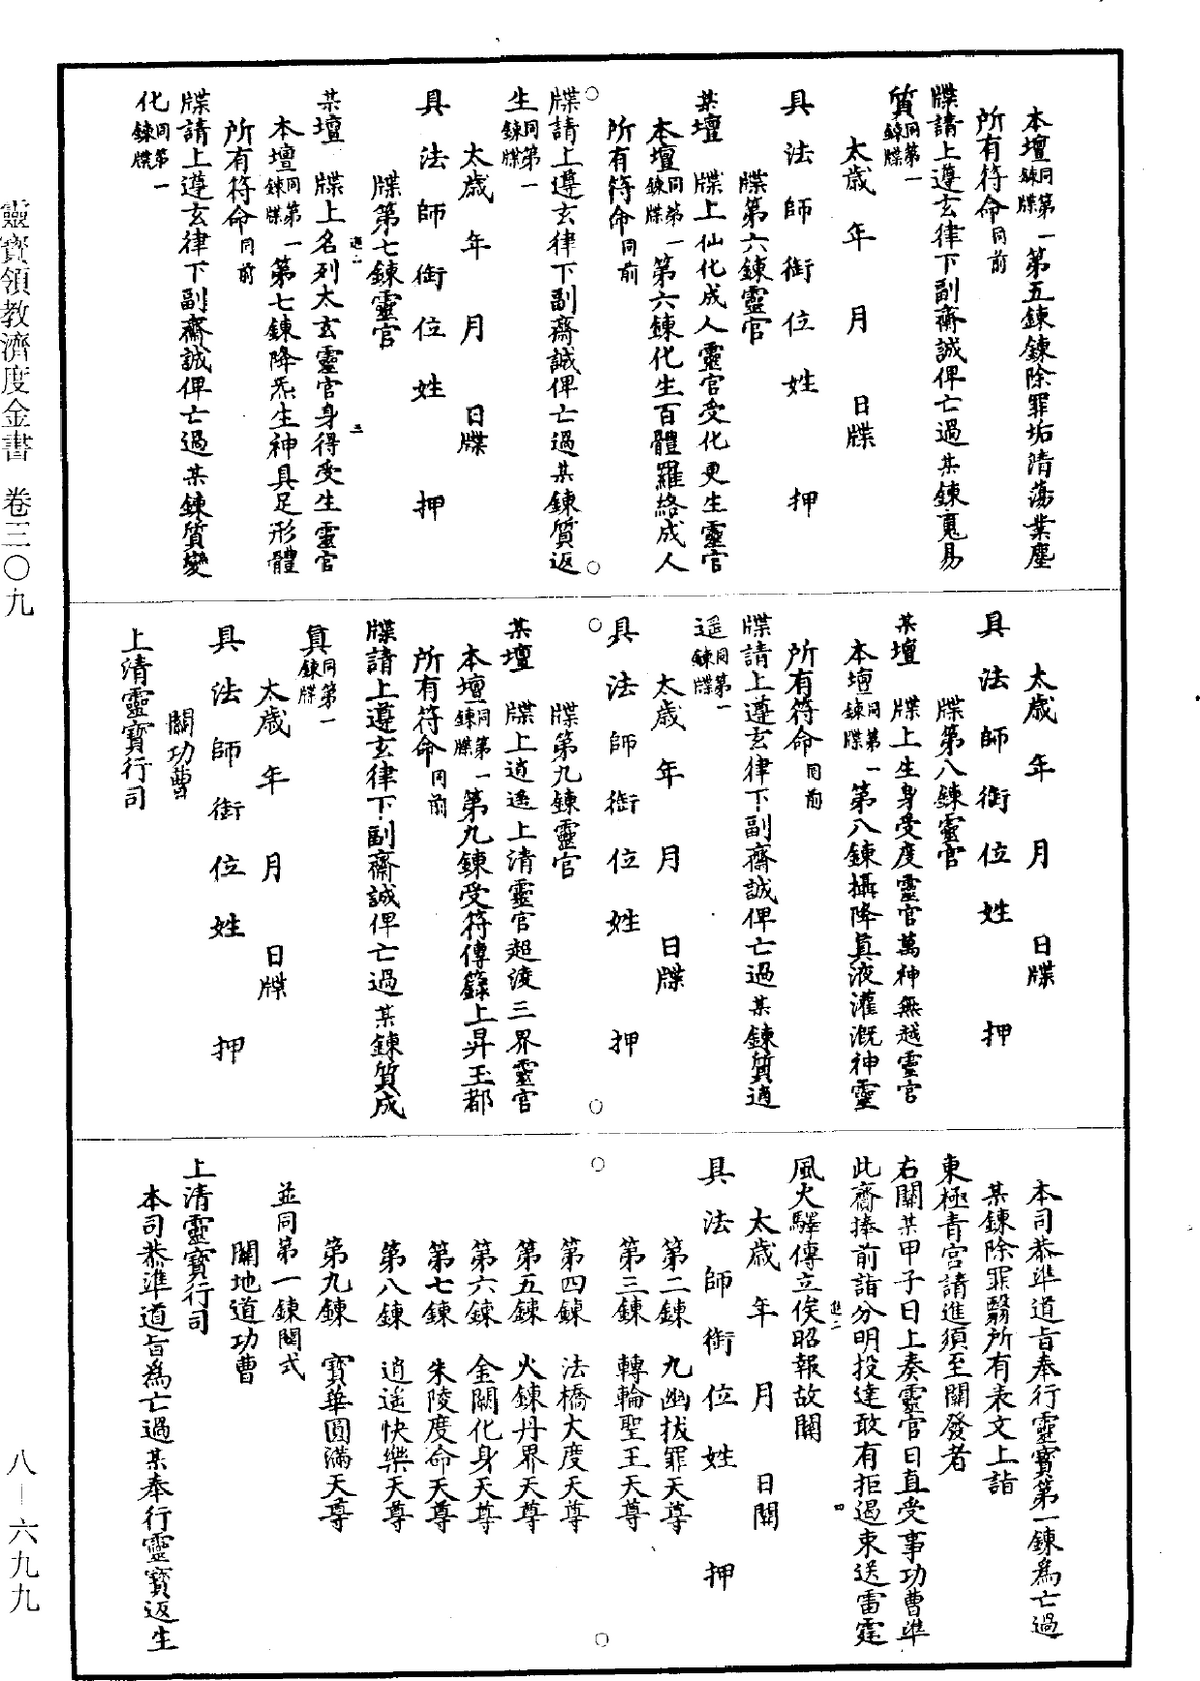 本壇同第一鍊牒第五鍊鍊除罪垢清蕩業塵
所有符命同前
牒請上遵玄律下副齋誠俾亡過某鍊䰟易
質同第一鍊牒
太歲　年　月　日牒
具法師銜位姓　押
牒第六鍊靈官
某壇　牒上仙化成人靈官受化更生靈官
本壇同第一鍊牒第六鍊化生百體羅絡成人
所有符命同前
牒請上遵玄律下副齋誠俾亡過某鍊質返
生同第一鍊牒
太歲　年　月　日牒
具法師銜位姓　押
牒第七鍊靈官
某壇　牒上名列太玄靈官身得受生靈官
本壇同第一鍊牒第七鍊降炁生神具足形體
所有符命同前
牒請上遵玄律下副齋誠俾亡過某鍊質變
化同第一鍊牒
太歲　年　月　日牒
具法師銜位姓　押
牒第八鍊靈官
某壇　牒上生身受度靈官萬神無越靈官
本壇同第一鍊牒第八鍊攝降真液灌溉神靈
所有符命同前
牒請上遵玄律下副齋誠俾亡過某鍊質逍
遥同第一鍊牒
太歲　年　月　日牒
具法師銜位姓　押
牒第九鍊靈官
某壇　牒上逍遥上清靈官超淩三界靈官
本壇同第一鍊牒第九鍊受符傳籙上昇玉都
所有符命同前
牒請上遵玄律下副齋誠俾亡過某鍊質成
真同第一鍊牒
太歲　年　月　日牒
具法師銜位姓　押
關功曹
上清靈寶行司
本司恭準道旨奉行靈寶第一鍊爲亡過
某鍊除罪翳所有表文上詣
東極青宮請進須至關發者
右關某甲子日上奏靈官日直受事功曹準
此齋捧前詣分明投達敢有拒遏束送雷霆
風火驛傳立俟昭報故關
太歲　年　月　日關
具法師銜位姓　押
第二鍊　九幽拔罪天尊
第三鍊　轉輪聖王天尊
第四鍊　法橋大度天尊
第五鍊　火鍊丹界天尊
第六鍊　金關化身天尊
第七鍊　朱陵度命天尊
第八鍊　逍遥快樂天尊
第九鍊　寶華圓滿天尊
並同第一鍊關式
關地道功曹
上清靈寶行司
本司恭準道旨爲亡過某奉行靈寶返生
靈寶領教濟度金書　卷三〇九
八—六九九